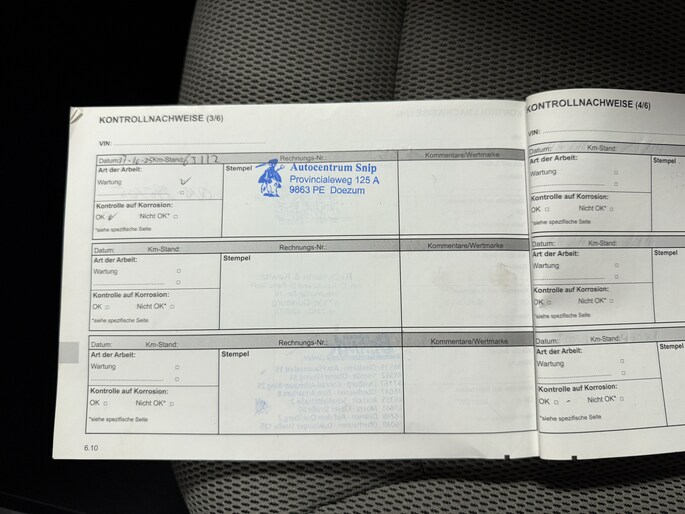 KONTROLLNACHWEISE (3/6)
VIN:
Datum: Km-Stand: 63112 Rechnungs-Nr.: Kommentare/Wertmarke
Art der Arbeit:
Wartung
Kontrolle auf Korrosion:
OK Nicht OK*
*siehe spezifische Seite
Stempel
Autocentrum Snip
Provincialeweg 125 A
9863 PE Doezum
Datum: Km-Stand: Rechnungs-Nr.: Kommentare/Wertmarke
Art der Arbeit:
Wartung
Kontrolle auf Korrosion:
OK Nicht OK*
*siehe spezifische Seite
Stempel
Datum: Km-Stand: Rechnungs-Nr.: Kommentare/Wertmarke
Art der Arbeit:
Wartung
Kontrolle auf Korrosion:
OK Nicht OK*
*siehe spezifische Seite
Stempel
6.10
KONTROLLNACHWEISE (4/6)
VIN:
Datum: Km-Stand:
Art der Arbeit:
Wartung
Kontrolle auf Korrosion:
OK Nicht OK*
*siehe spezifische Seite
Stempel
Datum: Km-Stand:
Art der Arbeit:
Wartung
Kontrolle auf Korrosion:
OK Nicht OK*
*siehe spezifische Seite
Stempel
Datum: Km-Stand:
Art der Arbeit:
Wartung
Kontrolle auf Korrosion:
OK Nicht OK*
*siehe spezifische Seite
Stempel